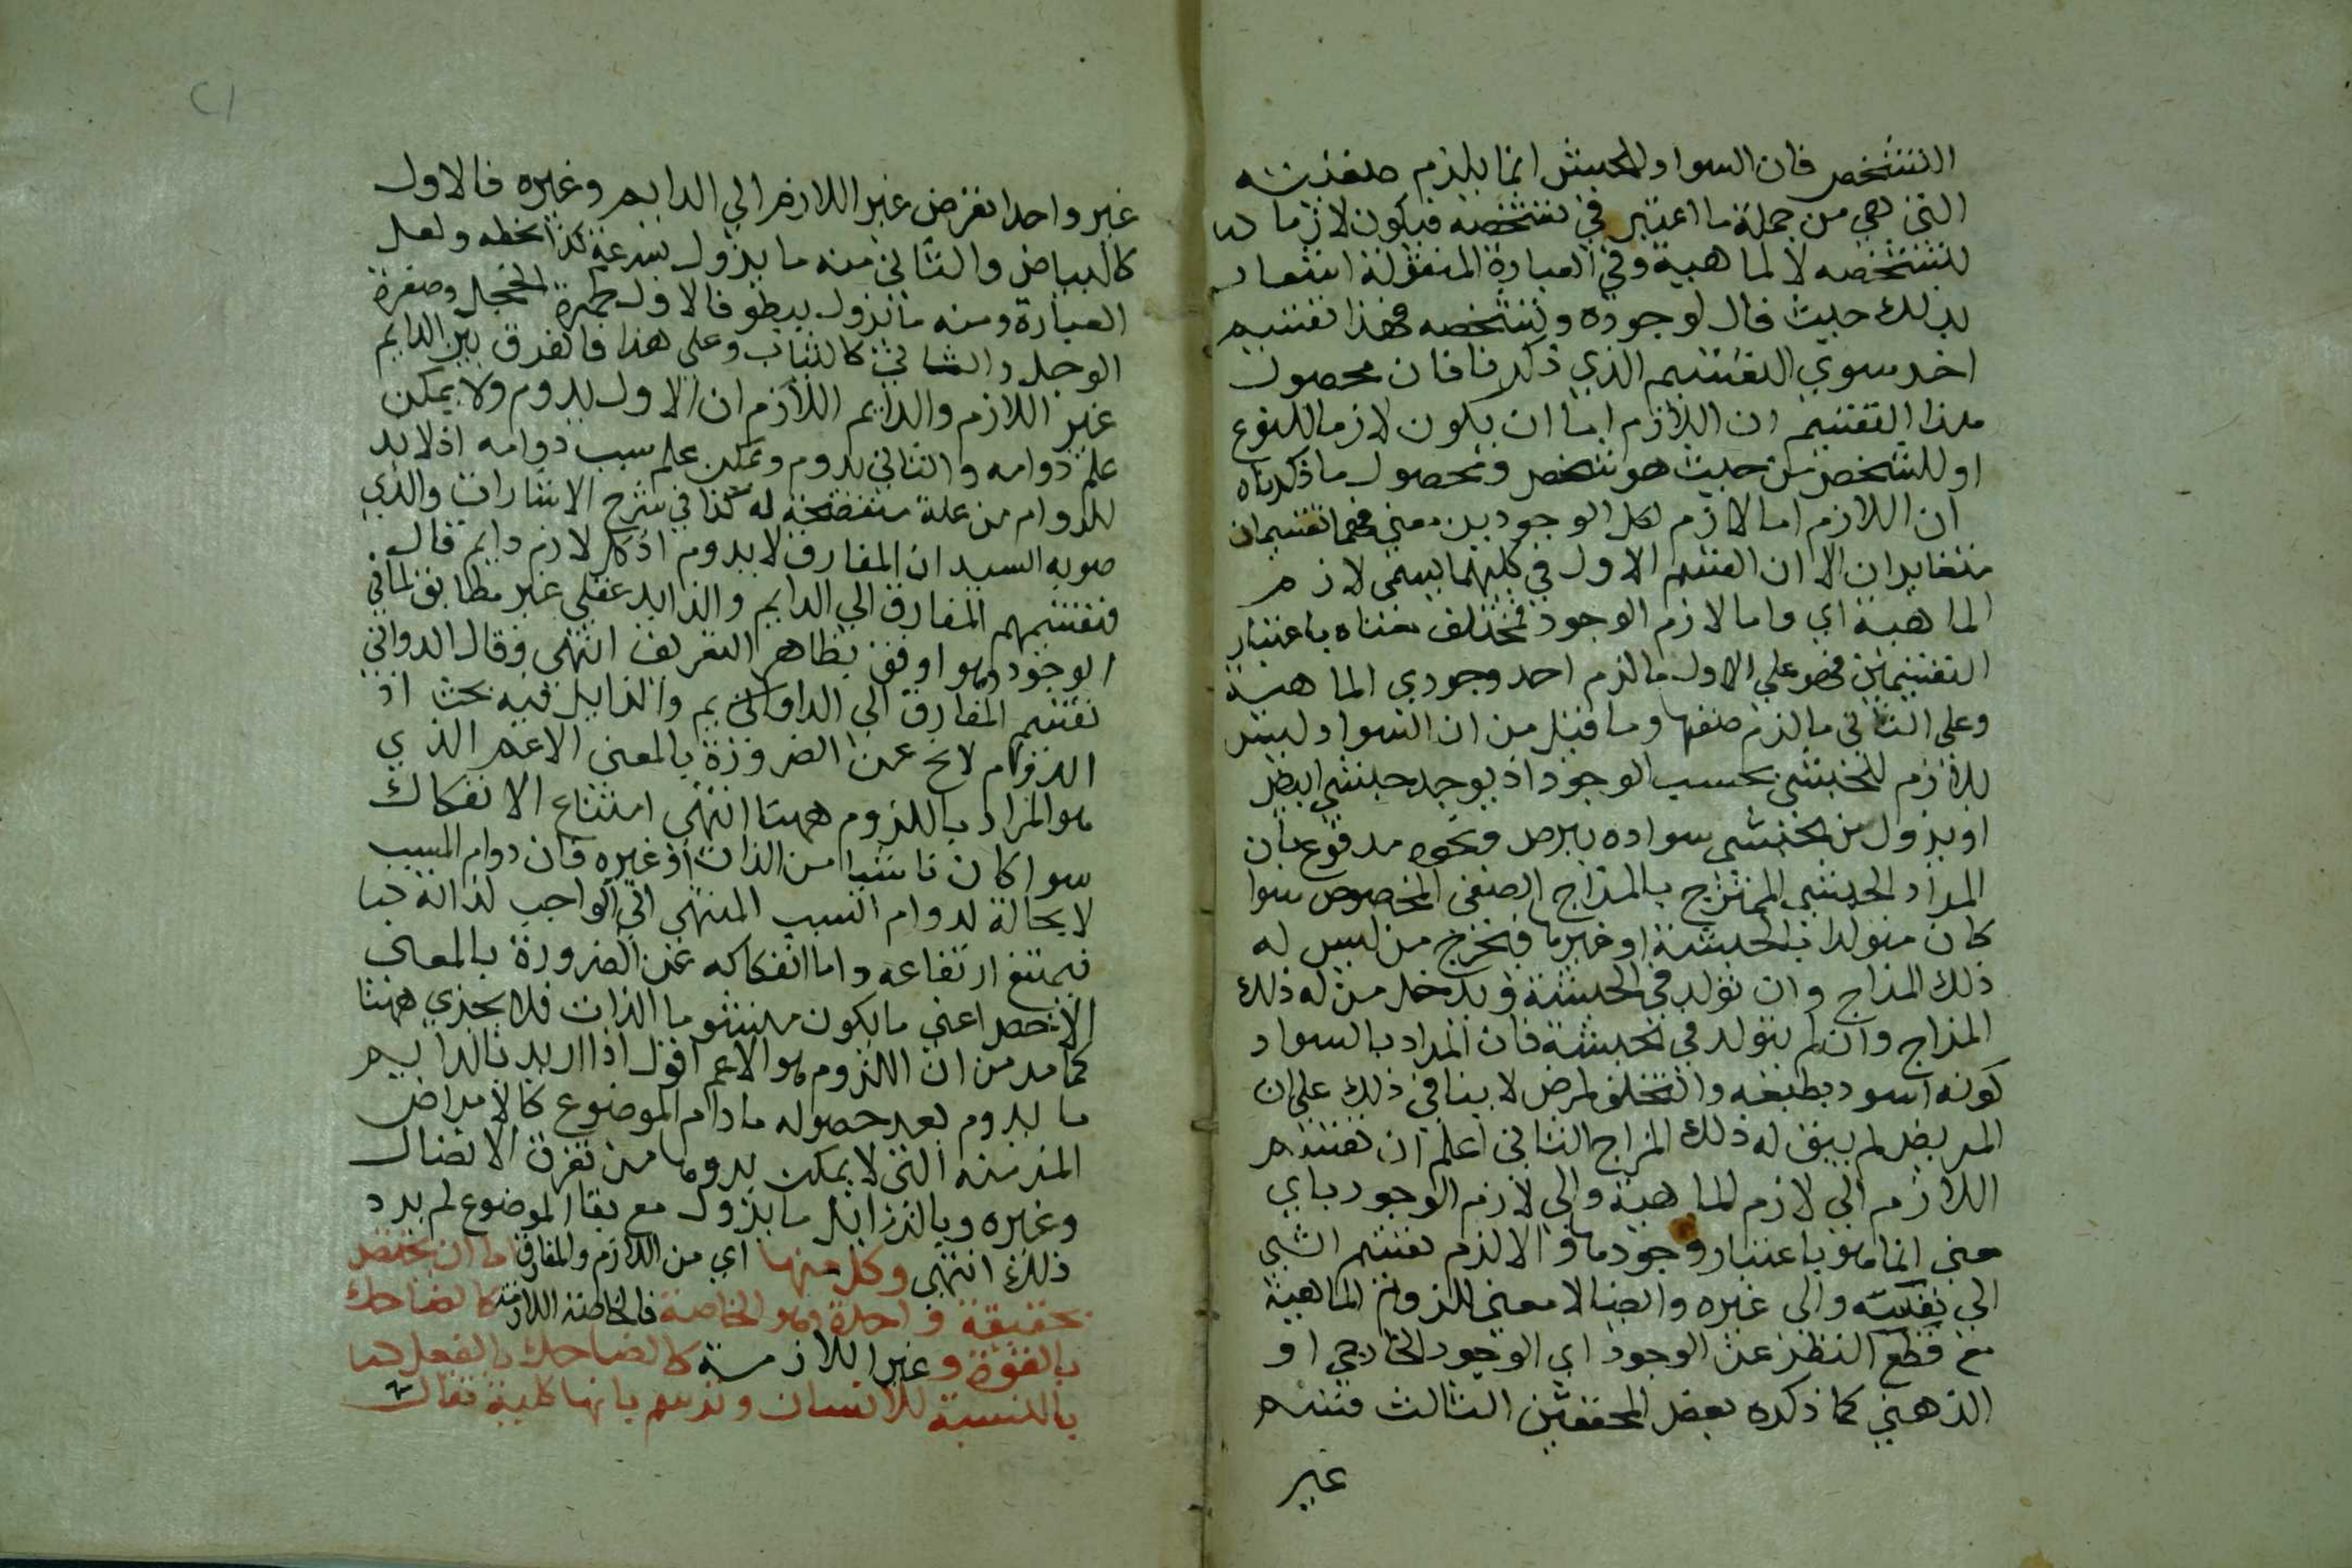 التشخص فان السواد للحبش انما يلزم صنفيته
التي هي من جملة ما اعتبر في تشخصه فيكون لازما
لتشخصه لا لماهية وفي العبارة المنقولة اشعار
بذلك حيث قال لوجوده وتشخصه فهذا تقسيم
اخر سوي التقسيم الذي ذكرنا فان محصول
هذا التقسيم ان اللازم اما ان يكون لازما للنوع
او للشخص من حيث هو شخص ومحصول ما ذكرناه
ان اللازم اما لازم لكل الوجودين معني فهما تقسيمان
متغايران الا ان القسم الاول في كليهما يسمى لازم
الماهية اي واما لازم الوجود فمختلف معناه باعتبار
التقسيمين فهو علي الاول ما لزم احد وجودي الماهية
وعلى الثاني ما لزم صنفها وما قيل من ان السواد ليس
بلازم للحبشي بحسب الوجود اذ يوجد حبشي ابيض
او يزول من حبشي سواده ببرص ونحوه مدفوع بان
المراد الحبشي الممتزج بالمزاج الصنفى المخصوص سوا
كان متولدا بالحبشة او غيرها فيخرج من ليس له
ذلك المزاج وان تولد في الحبشة ويدخل من له ذلك
المزاج وان لم يتولد في الحبشة فان المراد بالسواد
كونه اسود بطبعه والتخلف لمرض لا ينافي ذلك على ان
المريض لم يبق له ذلك المزاج الثاني اعلم ان تقسيم
اللازم الي لازم الماهية والي لازم الوجود باي
معنى انما هو باعتبار وجودها والا لزم تقسيم الشي
الي نفسه والى غيره وايضا لا معني للزوم الماهية
مع قطع النظر عن الوجود اي الوجود الخارجي او
الذهني كما ذكره بعض المحققين الثالث قسم
غير
غير واحد العرض غير اللازم الي الدايم وغيره فالاول
كالبياض والثاني منه ما يزول بسرعة كذا بخطه ولعل
العبارة ومنه ما يزول ببطو فالاول كحمرة الخجل وصفرة
الوجل والثاني كالشباب وعلى هذا فالفرق بين الدايم
غير اللازم والدايم اللازم ان الاول يدوم ولا يمكن
علم دوامه والثاني يدوم ويمكن علم سبب دوامه اذ لا بد
للدوام من علة مقتضية له كذا في شرح الاشارات والذي
صوبه السيد ان المفارق لا يدوم اذ كل لازم دايم قال
فتقسيمهم المفارق الي الدايم والزايل عقلي غير مطابق لما في
الوجود وهو اوفق بظاهر التعريف انتهى وقال الدواني
تقسيم المفارق الي الدايم والزايل فيه بحث اذ
الدوام لا يخ عن الضرورة بالمعني الاعم الذي
هو المراد باللزوم ههنا انتهى امتناع الانفكاك
سوا كان ناشيا من الذات او غيره فان دوام المسبب
لا محالة لدوام السبب المنتهى الي الواجب لذاته
فيمتنع ارتفاعه واما انفكاكه عن الضرورة بالمعني
الاخص اعني ما يكون منشوه الذات فلا يجدي ههنا
كما مر من ان اللزوم هو الاعم اقول اذا اريد بالدايم
ما يدوم بعد حصوله ما دام الموضوع كالامراض
المزمنة التي لا يمكن بروها من تفرق الاتصال
وغيره وبالزايل ما يزول مع بقا الموضوع لم يرد
ذلك انتهى وكل منهما اي من اللازم والمفارق اما ان يختص
بحقيقة واحدة وهو الخاصة فالخاصة اللازمة كالضاحك
بالقوة وغير اللازمة كالضاحك بالفعل هما
بالنسبة للانسان وترسم بانها كلية تقال